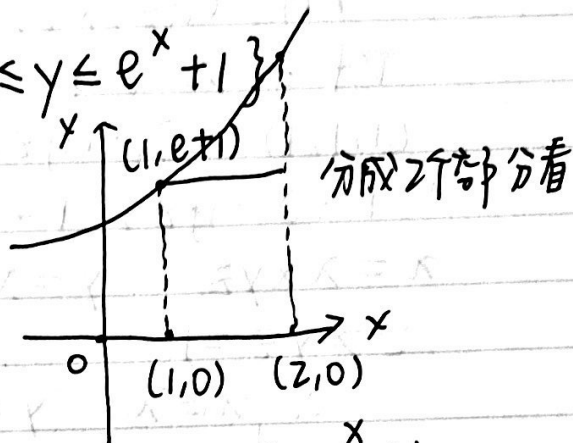 ≤ y ≤ e^x + 1 }
y
(1, e+1)
分成2个部分看
x
0
(1,0) (2,0)
x